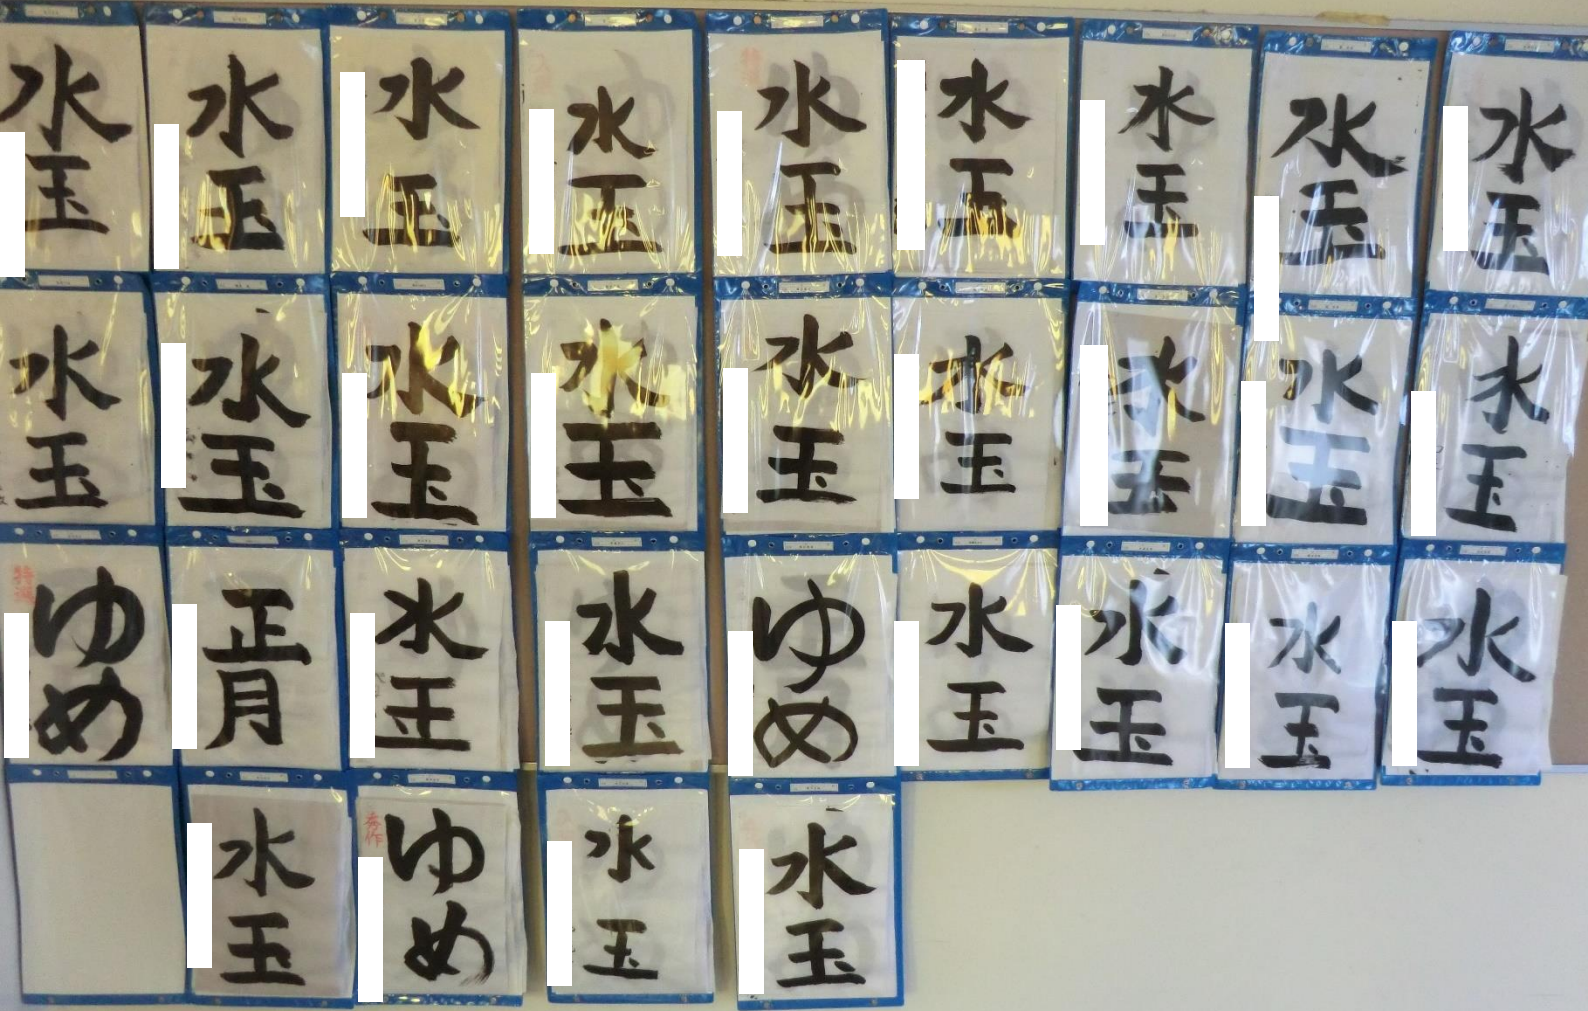 水玉
水玉
水玉
水玉
特選
水玉
水玉
水玉
水玉
水玉
水玉
水玉
水玉
水玉
水玉
水玉
水玉
水玉
水玉
特選
ゆめ
正月
水玉
水玉
ゆめ
水玉
水玉
水玉
水玉
水玉
秀作
ゆめ
水玉
水玉